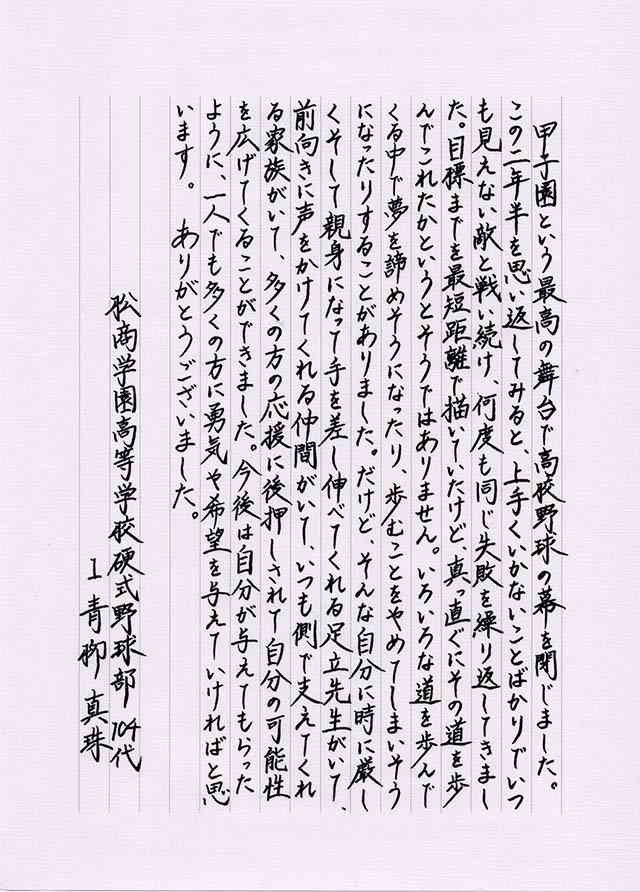 甲子園という最高の舞台で高校野球の幕を閉じました。
この二年半を思い返してみると、上手くいかないことばかりでいつ
も見えない敵と戦い続け、何度も同じ失敗を繰り返してきまし
た。目標までを最短距離で描いていたけど、真っ直ぐにその道を歩
んでこれたかというとそうではありません。いろいろな道を歩んで
くる中で夢を諦めそうになったり、歩むことをやめてしまいそう
になったりすることがありました。だけど、そんな自分に時に厳し
くそして親身になって手を差し伸べてくれる足立先生がいて、
前向きに声をかけてくれる仲間がいて、いつも側で支えてくれ
る家族がいて、多くの方の応援に後押しされて自分の可能性
を広げてくることができました。今後は自分が与えてもらった
ように、一人でも多くの方に勇気や希望を与えていければと思
います。　ありがとうございました。
松商学園高等学校硬式野球部 104代
1 青栁 真珠